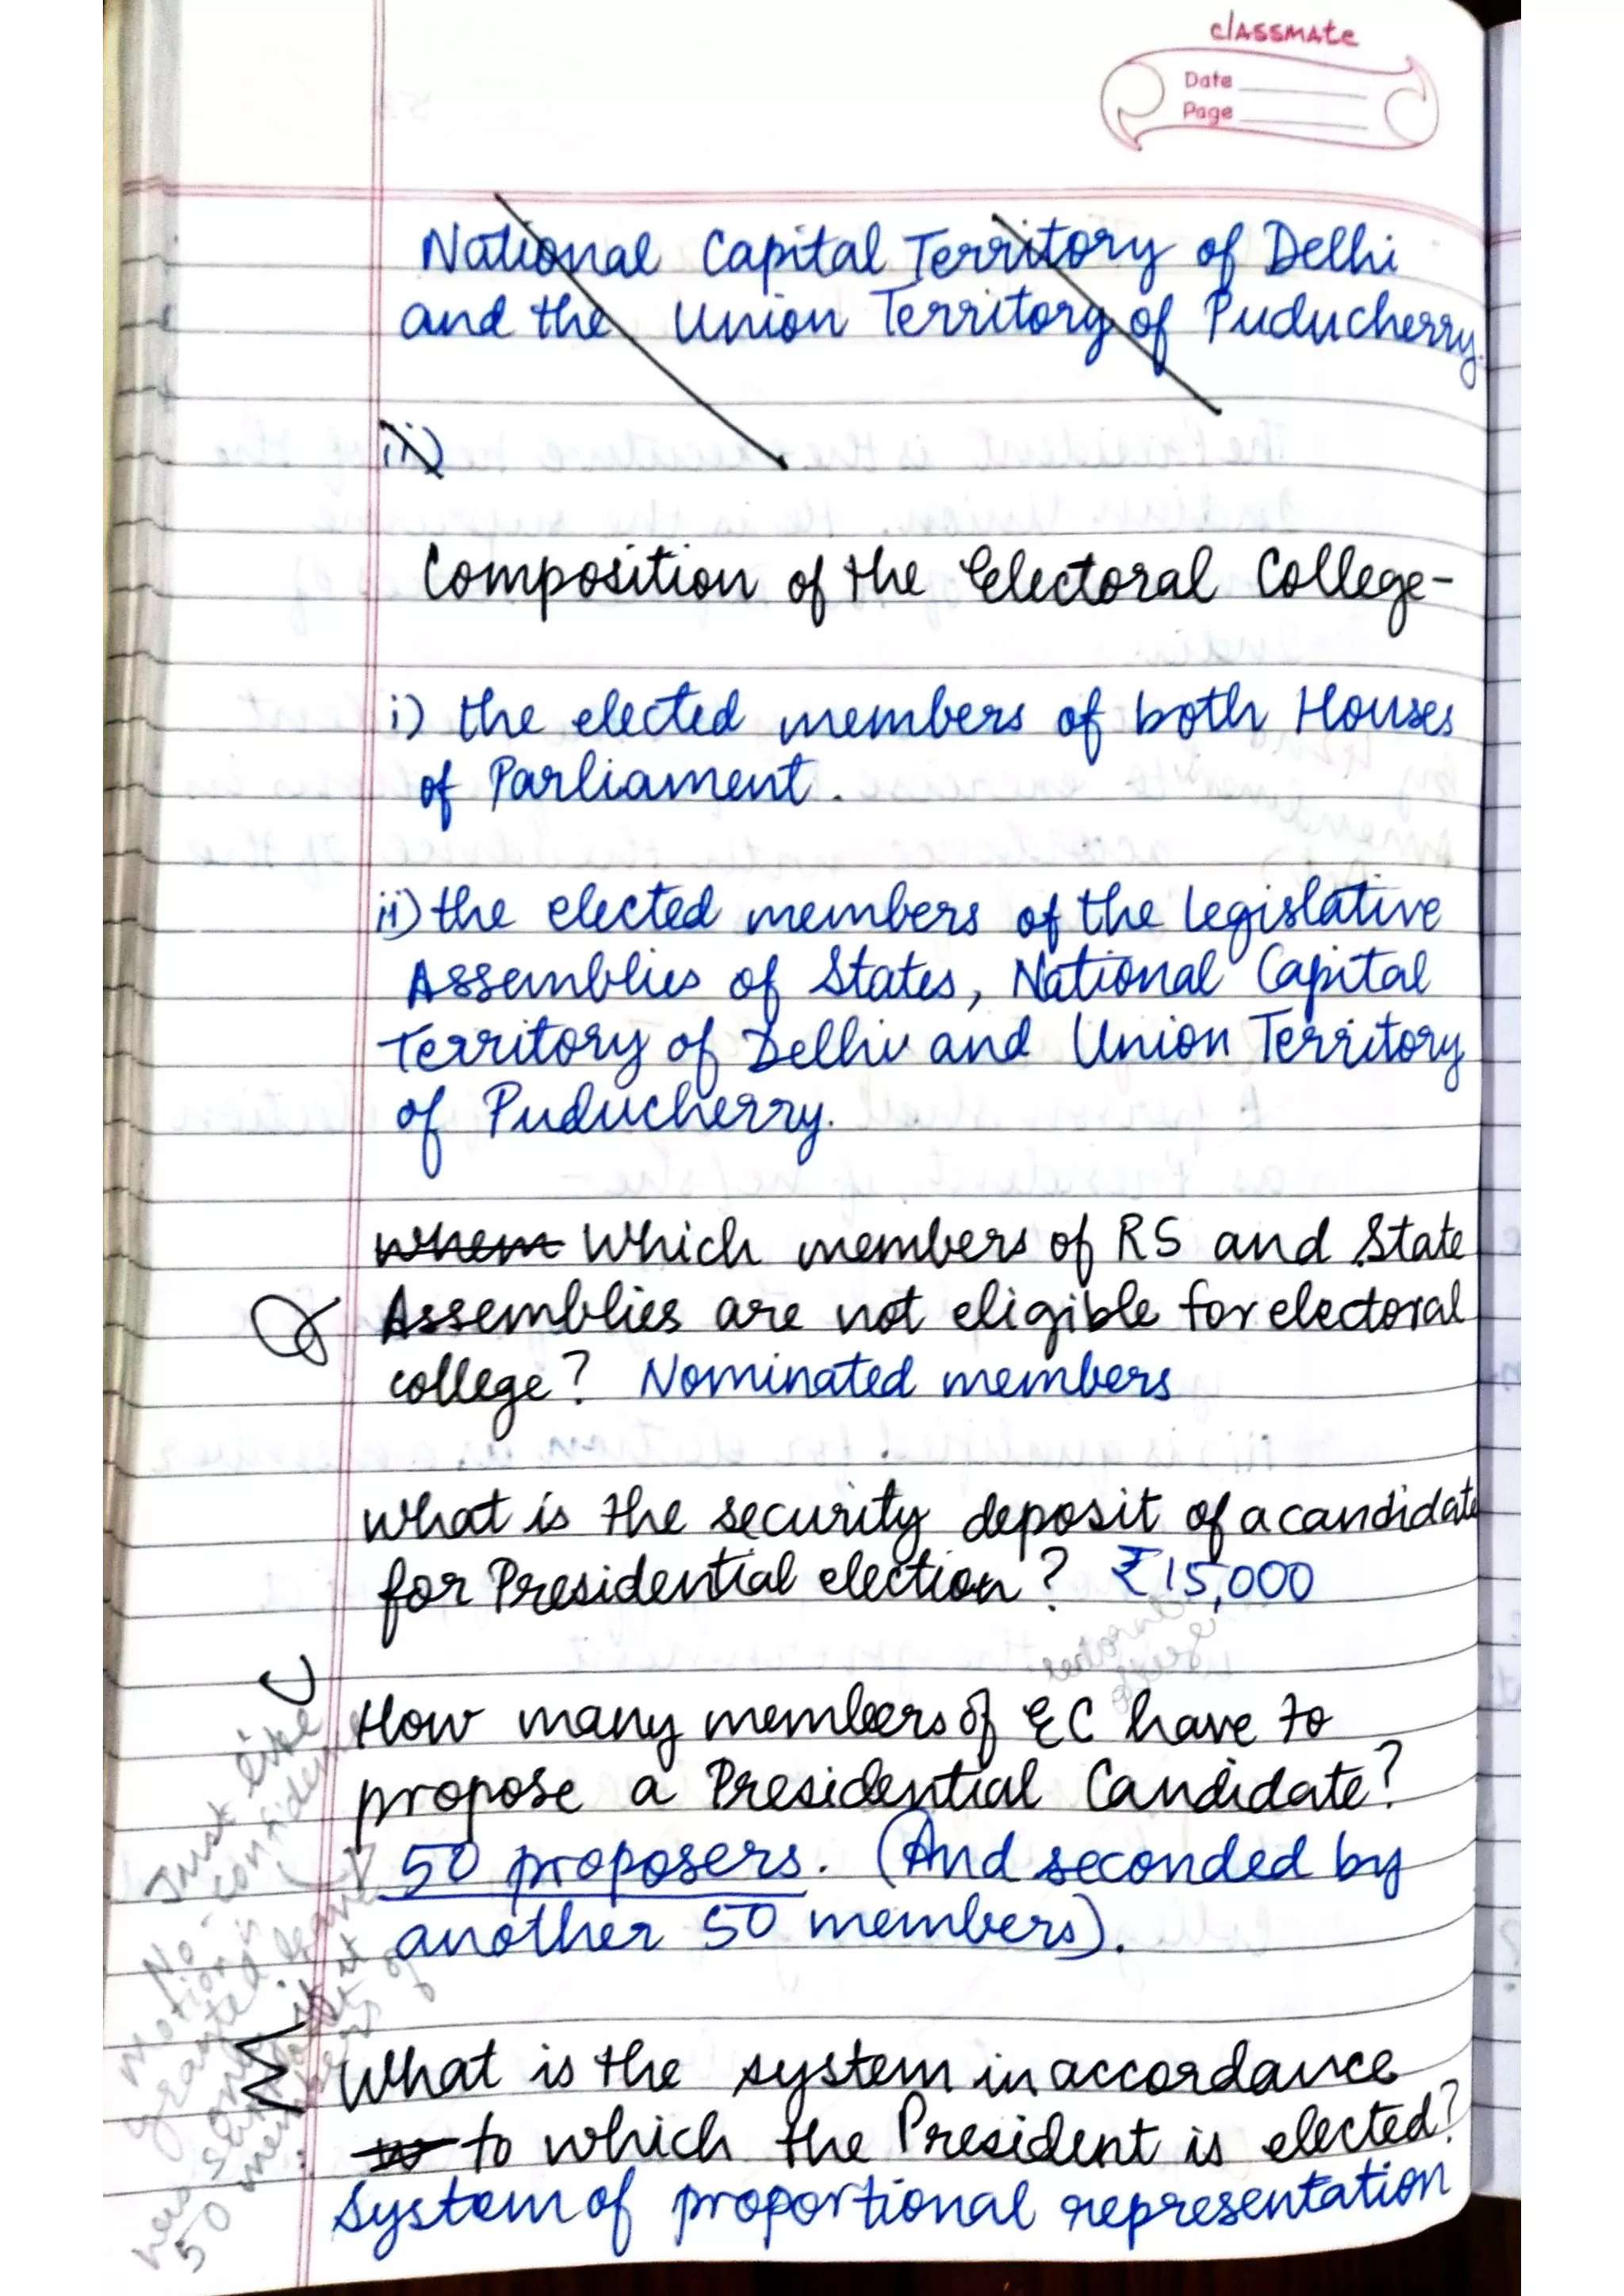 classmate
Date
Page
National Capital Territory of Delhi
and the Union Territory of Puducherry.
ii)
Composition of the Electoral College-
i) the elected members of both Houses
of Parliament.
ii) the elected members of the Legislative
Assemblies of States, National Capital
Territory of Delhi and Union Territory
of Puducherry.
whem Which members of RS and State
Assemblies are not eligible for electoral
college? Nominated members
What is the security deposit of a candidate
for Presidential election? ₹15,000
How many members of EC have to
propose a Presidential Candidate?
50 proposers. (And seconded by
another 50 members).
Just like
No-confidence
motion is
granted leave
only if it
has support of
50 members.
What is the system in accordance
to which the President is elected?
System of proportional representation